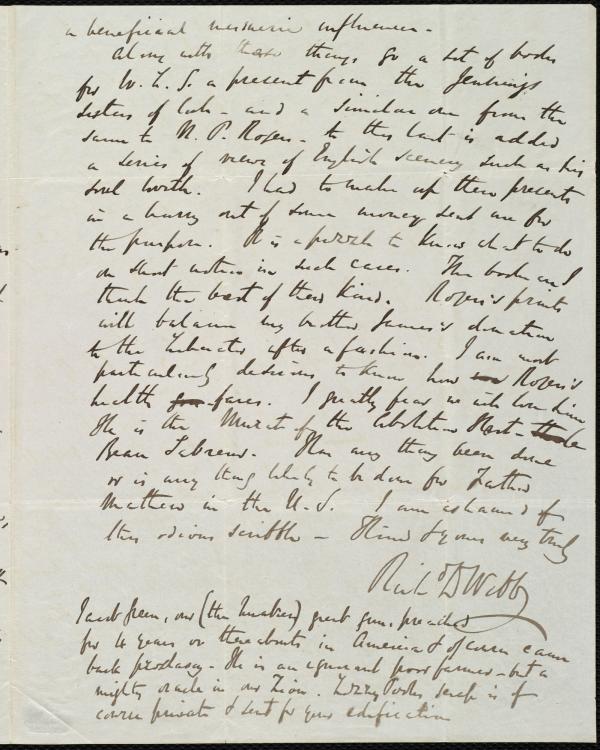 a beneficial mesmeric influence.
Along with these things go a set of books
for W. L. G. a present from the Jennings
sisters of Cork - and a similar one from the
same to N. P. Rogers - to this last is added
a series of views of English scenery such as his
soul loveth. I had to make up these presents
in a hurry out of some money sent me for
the purpose. It is a puzzle to know what to do
on short notice in such cases. The books are I
think the best of their kind. Rogers's prints
will balance my brother James's donation
to the Liberator after a fashion. I am most
particularly desirous to know how Rogers's
health fares. I greatly fear we will lose him
He is the Murat of the Abolition Host - the
Beau Sabreur. Has any thing been done
or is any thing likely to be done for Father
Mathew in the U.S. I am ashamed of
this odious scribble - Thine & yours very truly
Richd D Webb
Jacob Green, our (the Quakers) great gun, preached
for 4 years or thereabouts in America & of course came
back proslavery. He is an ignorant poor farmer - but a
mighty oracle in our Zion. Lizzy Poole's scrap is of
course private & sent for your edification